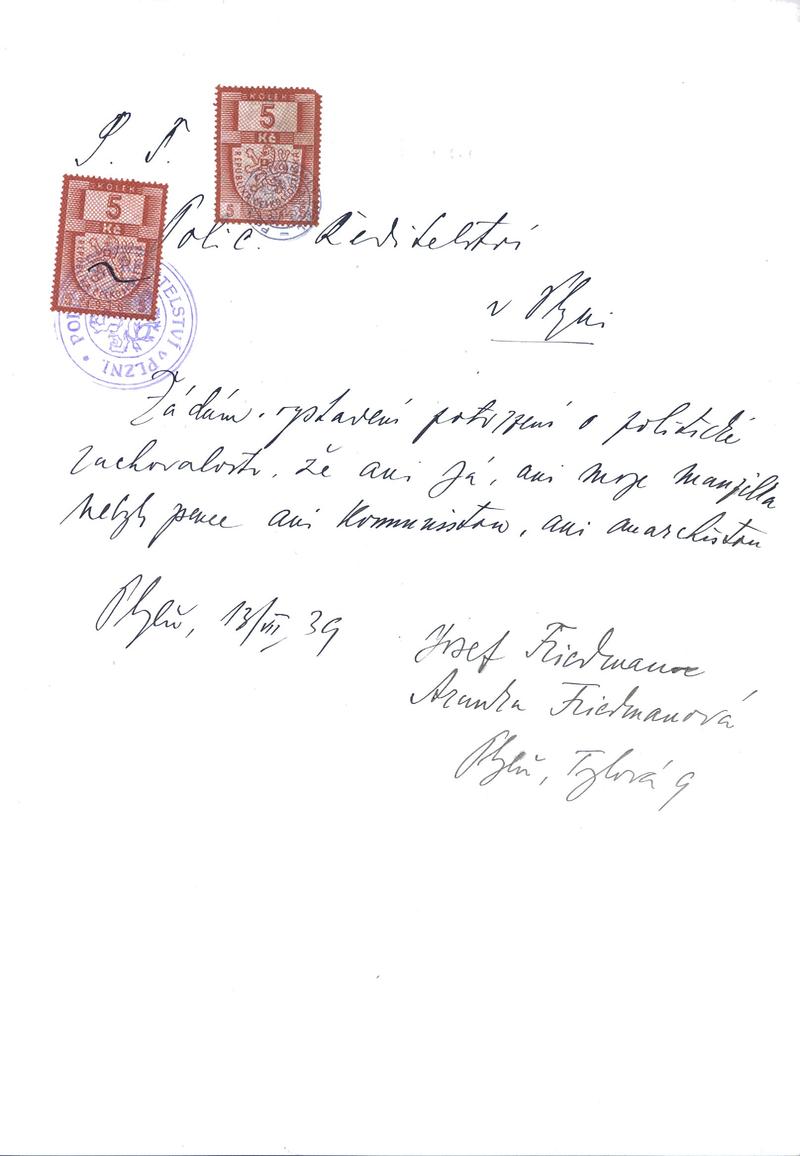 P. T.
KOLEK
5
Kč
REPUBLIKA ČESKOSLOVENSKÁ
KOLEK
5
Kč
Polic. Ředitelství
v Plzni
POLICEJNÍ ŘEDITELSTVÍ v PLZNI.
Žádám vystavení potvrzení o politické
zachovalosti, že ani já, ani moje manželka
ani komunistou, ani anarchistou
Plzeň, 13/VII, 39
Josef Friedmann
Aranka Friedmanová
Plzeň, Tylová 9